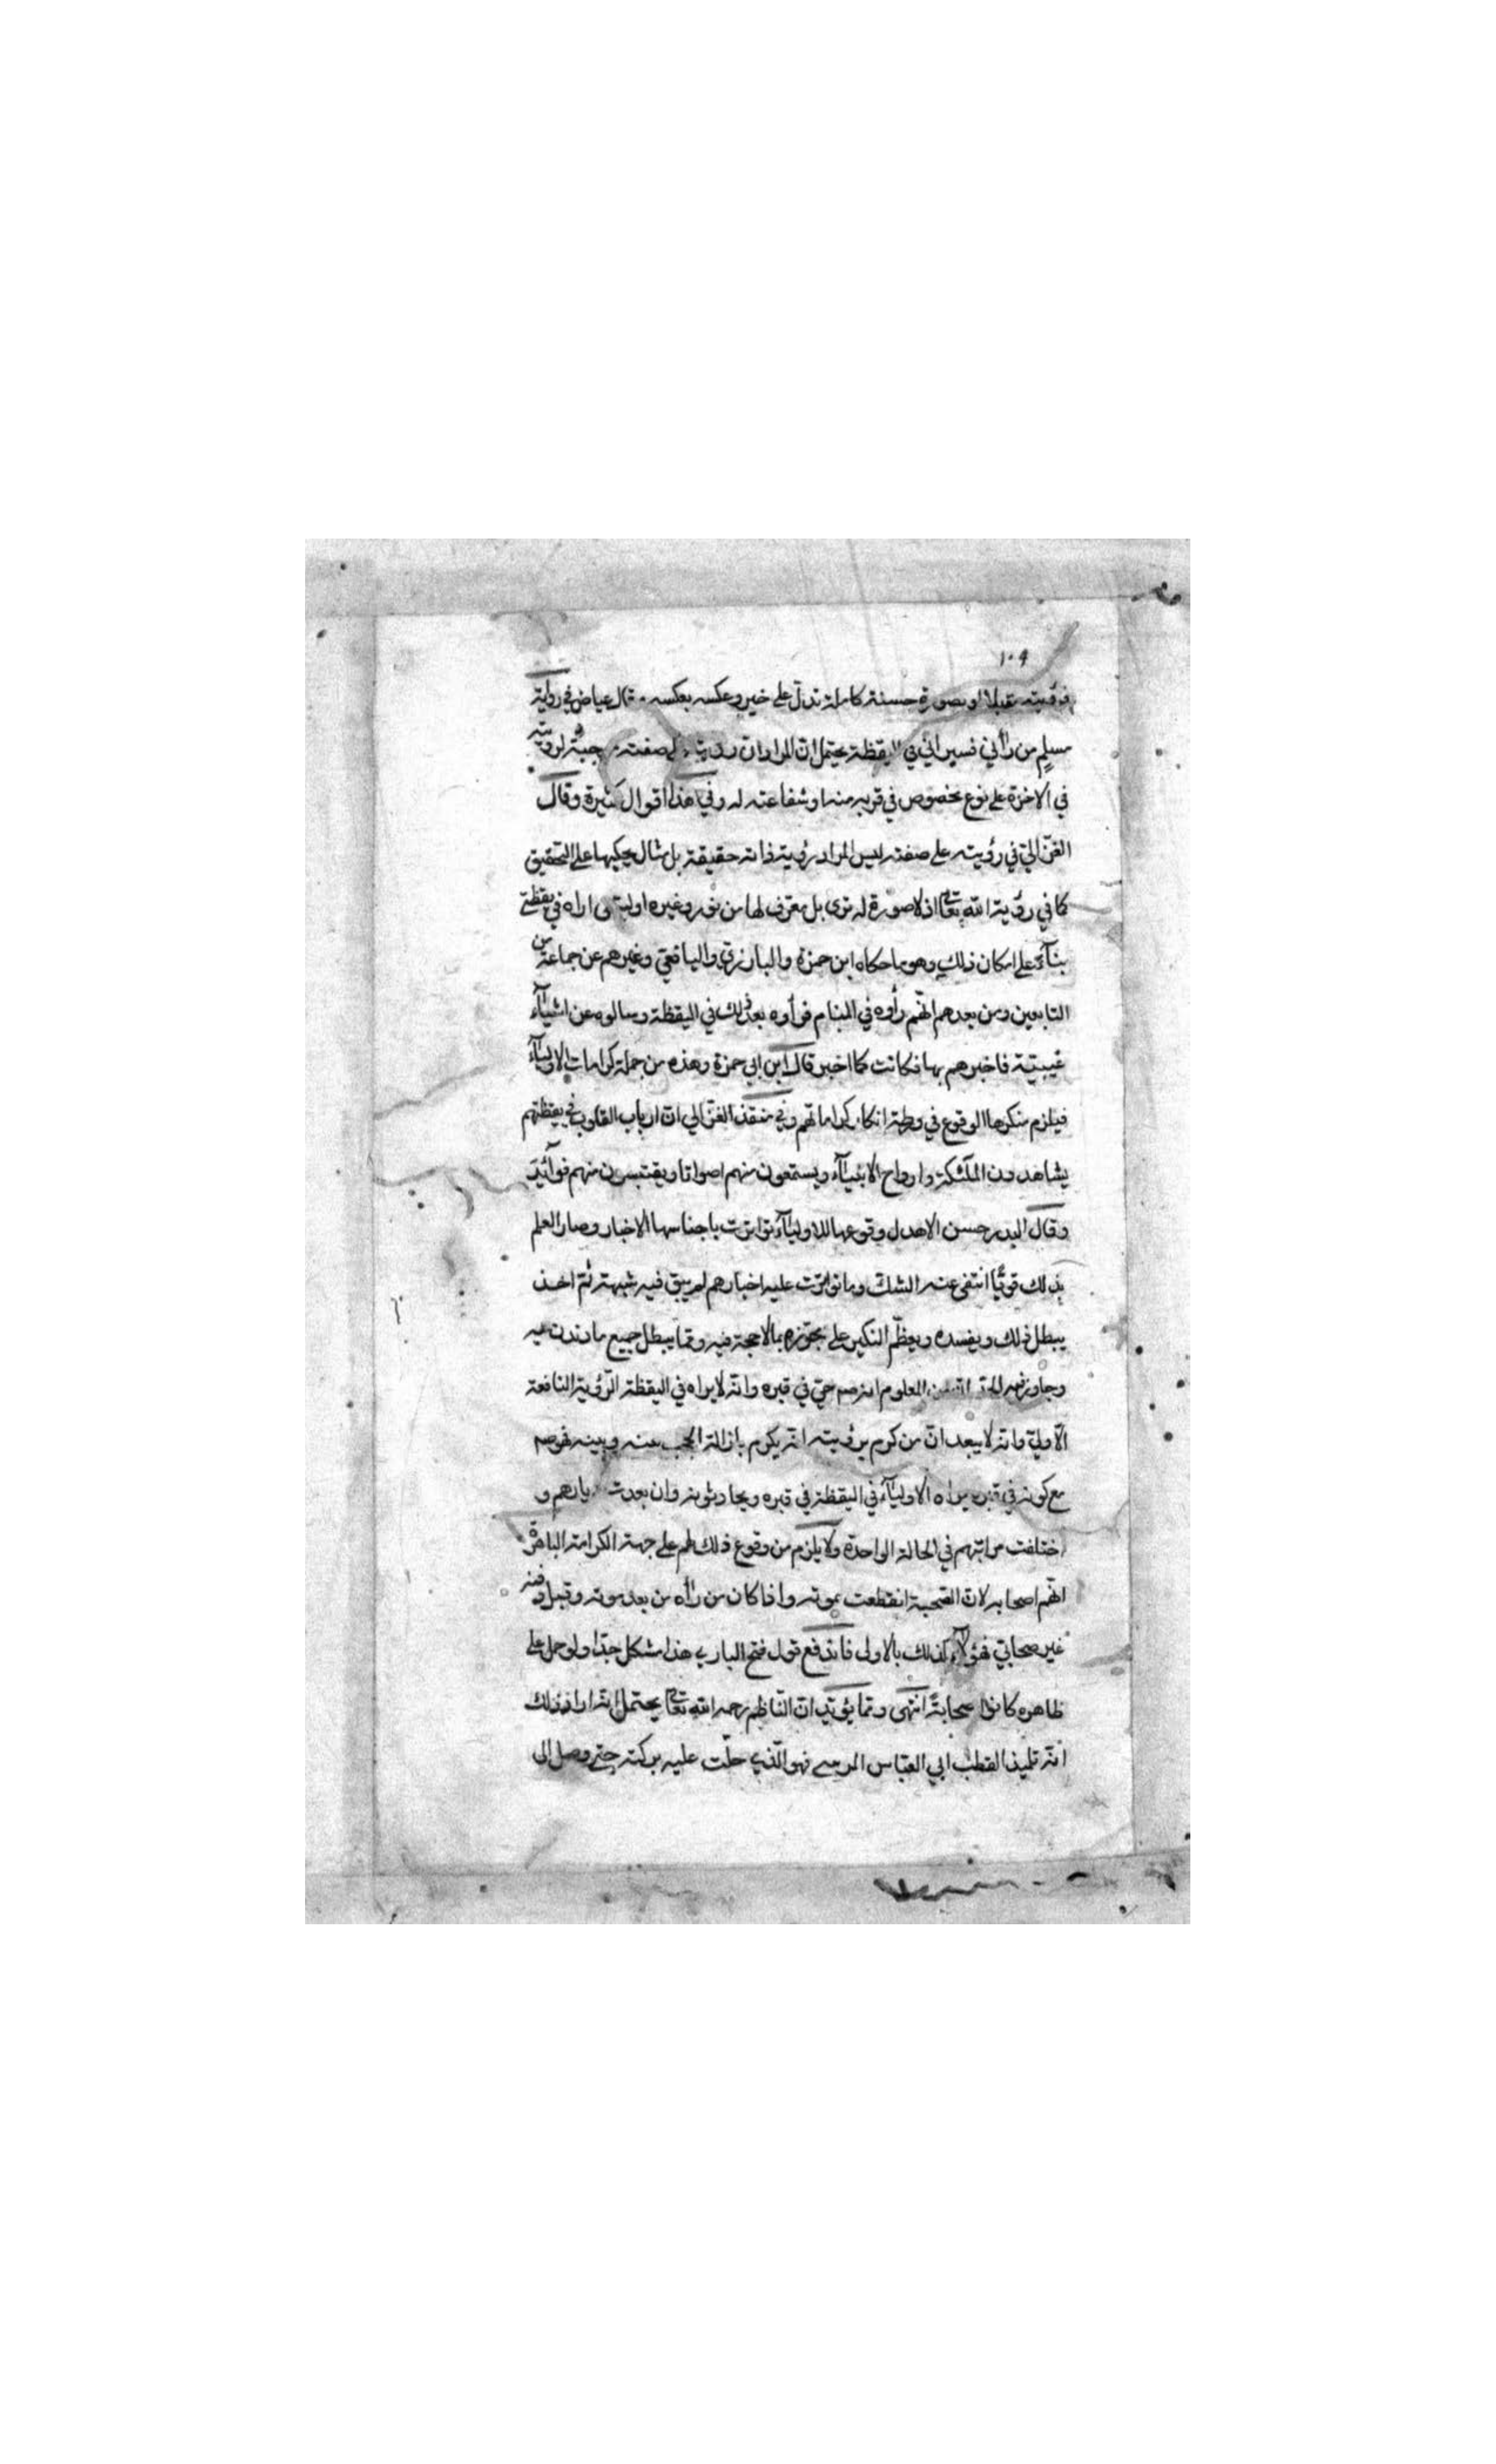 ١٠٩
فرؤيته مقبلا او بصورة حسنة كاملة تدل على خير وعكسه بعكسه قال عياض في رواية
مسلم من رأني فسيراني في اليقظة يحتمل ان المراد ان رؤيته صفته موجبة لرويته
في الاخرة على نوع مخصوص في قربه منه او شفاعته له وفي هذا اقوال كثيرة وقال
الغزّالي في رؤيته على صفته ليس المراد رؤية ذاته حقيقة بل مثال يحكيها على التحقيق
كما في رؤية الله تعالى اذ لا صورة له ترى بل معرف لها من نور وغيره او ليتني اراه في يقظتي
بناء على امكان ذلك وهو ما حكاه ابن حمزة والبارزي واليافعي وغيرهم عن جماعة من
التابعين ومن بعدهم انهم رأوه في المنام فرأوه بعد ذلك في اليقظة وسالوه عن اشياء
غيبيّة فاخبرهم بها فكانت كما اخبر قال ابن ابي حمزة وهذه من جملة كرامات الاولياء
فيلزم منكرها الوقوع في ورطة انكار كراماتهم وفي منقذ الغزّالي ان ارباب القلوب في يقظتهم
يشاهدون الملئكة وارواح الانبياء ويستمعون منهم اصواتا ويقتبسون منهم فوائد
وقال البدر حسن الاهدل وقوعها للاولياء تواترت باجناسها الاخبار وصار العلم
بذلك قويّا انتفى عنه الشك وما تواترت عليه اخبارهم لم يبق فيه شبهة ثم اخذ
يبطل ذلك ويفسده ويعظّم النكير على مجوّزه بما لا حجة فيه ومما يبطل جميع ما دندن فيه
وجاوز فيه الحد ان من المعلوم انه صم حيّ في قبره وانه لا يراه في اليقظة الرّؤية النافعة
الّا وليّ وانه لا يبعد ان من كرم برؤيته انه يكرم بازالة الحجب بينه وبينه فهو صم
مع كونه في قبره يراه الاولياء في اليقظة في قبره ويحادثونه وان بعدت ديارهم و
اختلفت مراتبهم في الحالة الواحدة ولا يلزم من وقوع ذلك لهم على جهة الكرامة الباهرة
انهم اصحابه لان الصحبة انقطعت بموته واذا كان من رأه من بعد موته وقبل دفنه
غير صحابيّ فهؤلاء كذلك بالاولى فاندفع قول فتح الباري هذا مشكل جدّا ولو حمل على
ظاهره كانوا صحابة انتهى ومما يؤيّد ان النّاظم رحمه الله تعالى يحتمل انه اراد ذلك
انّه تلميذ القطب ابي العبّاس المرسي فهو الّذي حلّت عليه بركته حتى وصل الى